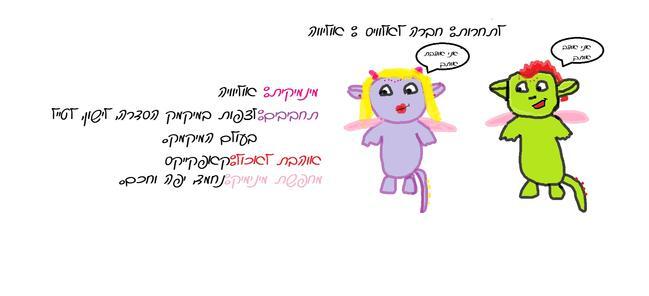 לתחרות: חברה לאלוויס : אוליווה
אני אוהבת
אותך
אני אוהב
אותך
מינמיקית: אוליוויה
תחביבים: לצפות במיקמק הסדרה, לישון, לטייל
בעולם המיקמק.
אוהבת לאכול: קאפקייקס
מחפשת מינימיק: נחמד, יפה וחכם.